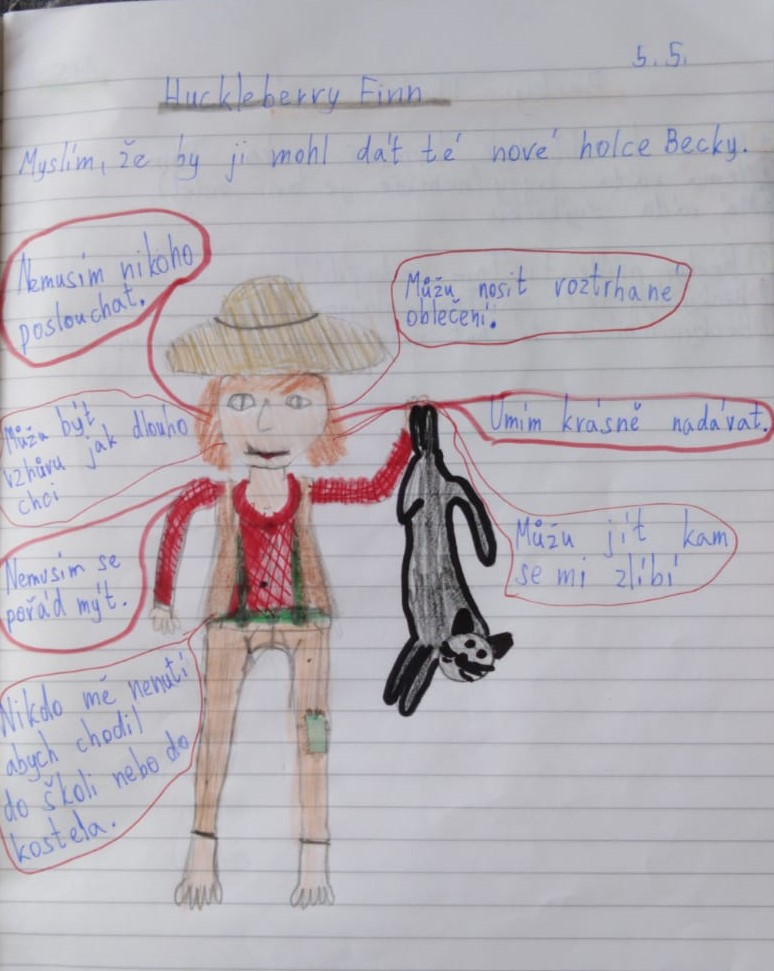 5.5.
Huckleberry Finn
Myslím, že by ji mohl dát té nové holce Becky.
Nemusím nikoho
poslouchat.
Můžu nosit roztrhané
oblečení.
Můžu být
vzhůru jak dlouho
chci
Umím krásně nadávat.
Nemusím se
pořád mýt.
Můžu jít kam
se mi zlíbí
Nikdo mě nenutí
abych chodil
do školi nebo do
kostela.